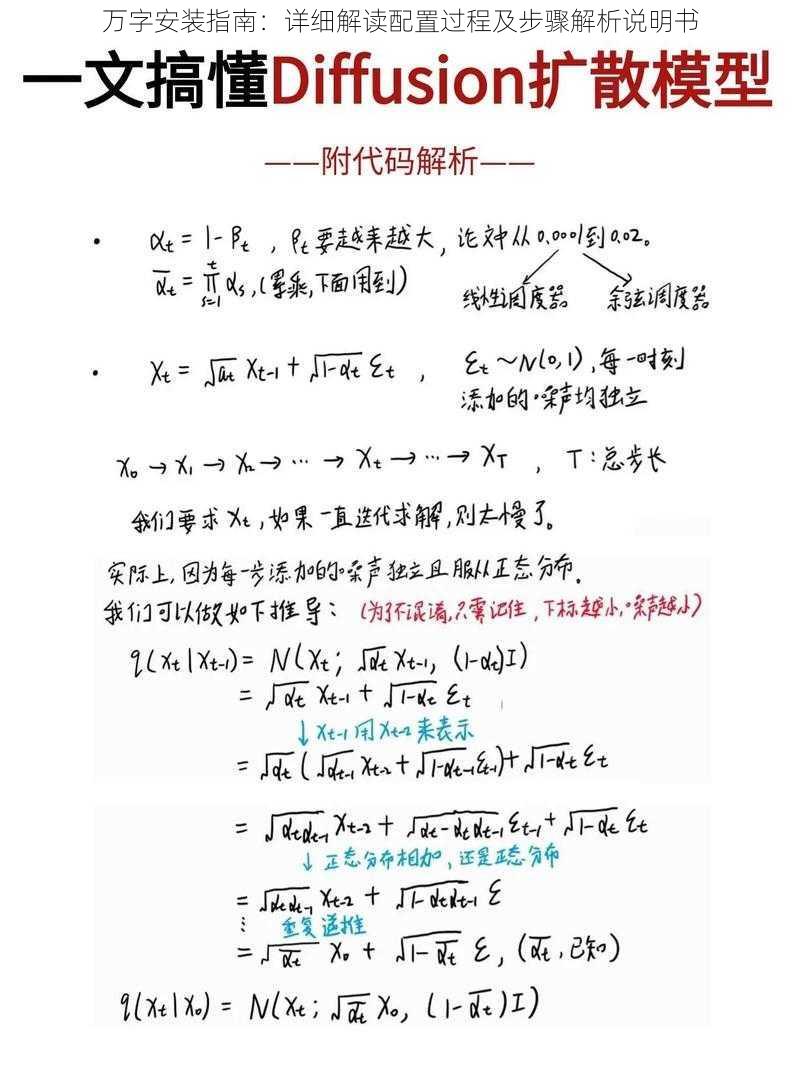 万字安装指南：详细解读配置过程及步骤解析说明书
一文搞懂Diffusion扩散模型
——附代码解析——
• αt = 1-βt ，βt要越来越大，论文中从0.0001到0.02。
ᾱt = ∏(s=1→t) αs，(累乘，下面用到)
线性调度器 余弦调度器
• Xt = √αt Xt-1 + √1-αt εt ， εt ~ N(0,1)，每一时刻
添加的噪声均独立
X0 → X1 → X2 → ··· → Xt → ··· → XT ， T：总步长
我们要求Xt，如果一直迭代求解，则太慢了。
实际上，因为每一步添加的噪声独立且服从正态分布．
我们可以做如下推导：(为了不混淆，只需记住，下标越小，噪声越小)
q(Xt|Xt-1) = N(Xt; √αt Xt-1, (1-αt)I)
= √αt Xt-1 + √1-αt εt
↓Xt-1用Xt-2来表示
= √αt (√αt-1 Xt-2 + √1-αt-1 εt-1) + √1-αt εt
= √αtαt-1 Xt-2 + √αt-αtαt-1 εt-1 + √1-αt εt
↓ 正态分布相加，还是正态分布
= √αtαt-1 Xt-2 + √1-αtαt-1 ε
⋮ 重复递推
= √ᾱt X0 + √1-ᾱt ε，(ᾱt，已知)
q(Xt|X0) = N(Xt; √ᾱt X0, (1-ᾱt)I)